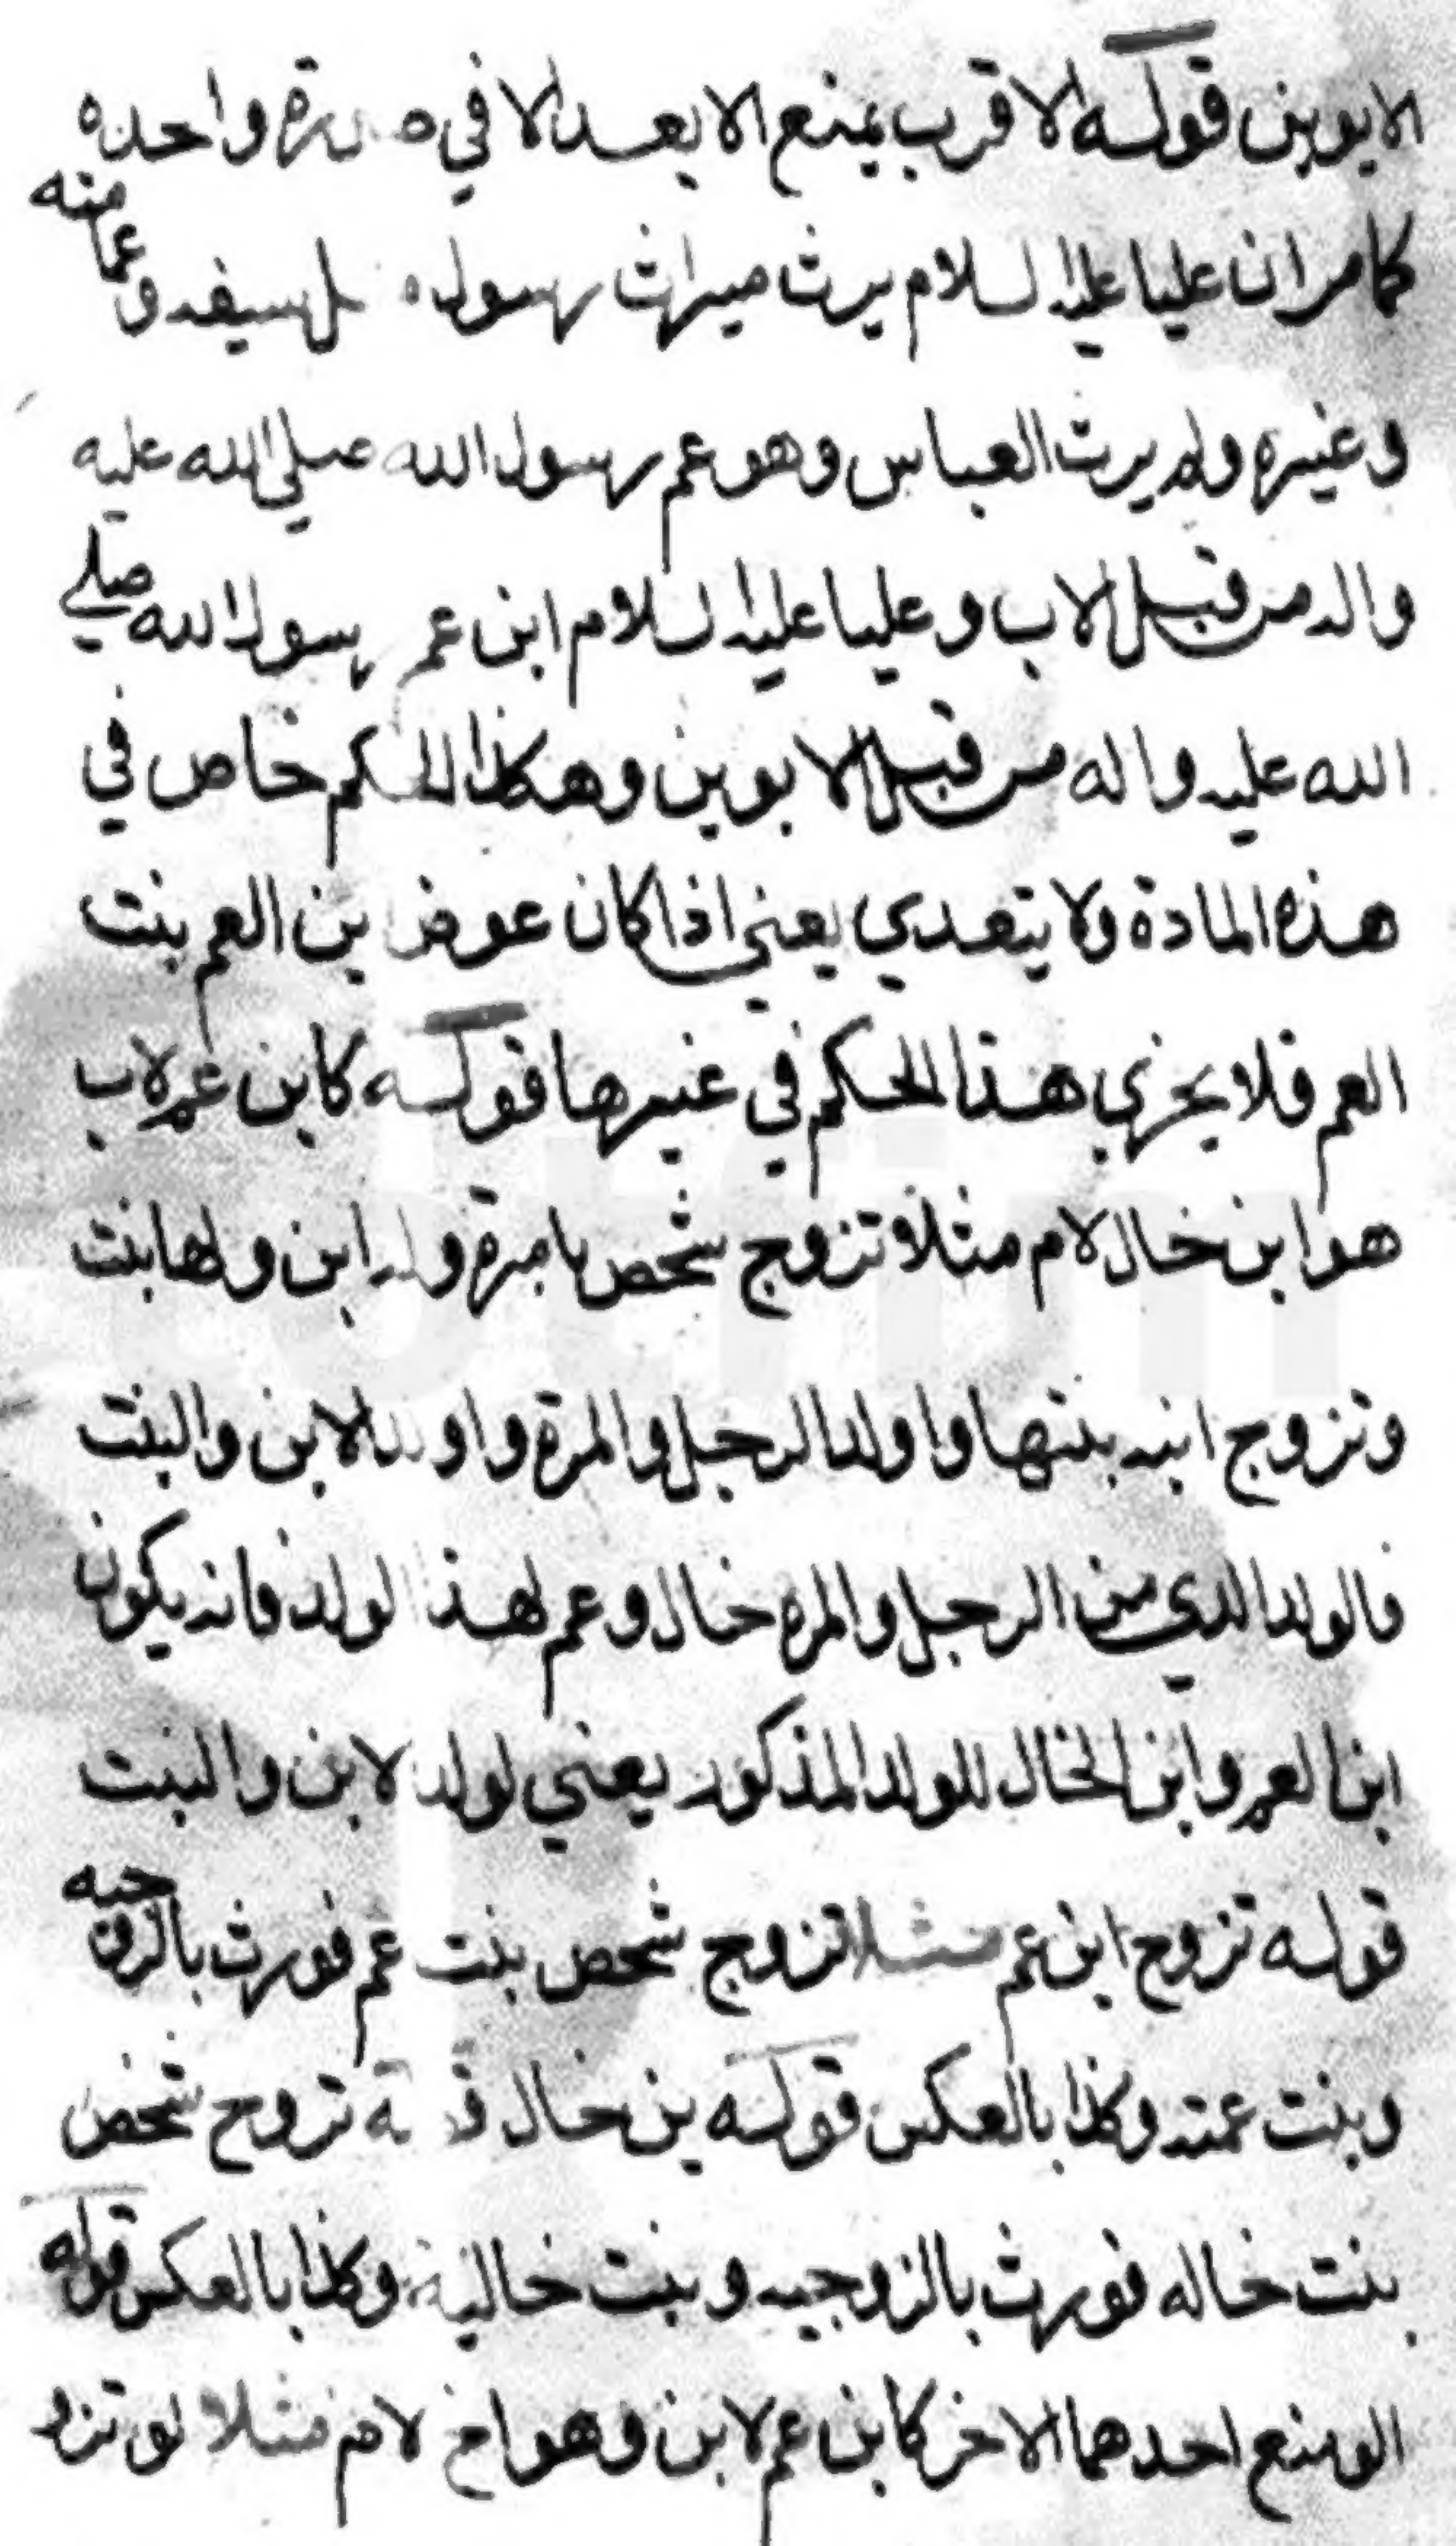 الابوين قوله الاقرب يمنع الابعد الا في صورة واحده
كامر ان عليا عليه السلام يرث ميراث رسول الله سيفه وعمامته
وغيره ولم يرث العباس وهو عم رسول الله صلي الله عليه
واله من قبل الاب وعليا عليه السلام ابن عم رسول الله صلے
الله عليه واله من قبل الابوين وهكذا الحكم خاص في
هذه المادة ولا يتعدي يعني اذا كان عوض ابن العم بنت
العم فلا يجزي هذا الحكم في غيرها قوله كابن عم لاب
هو ابن خال لام مثلا تزوج شخص بامرة وله ابن ولها بنت
وتزوج ابنه بنتها واولد الرجل والمرة واولد الابن والبنت
فالولد الذي من الرجل والمره خال وعم لهذا الولد فانه يكون
ابن العم وابن الخال للولد المذكور يعني لولد لابن والبنت
قوله تزوج ابن عم مثلا تزوج شخص بنت عم فورث بالزوجيه
وبنت عمته وكذا بالعكس قوله بن خال تزوج شخص
بنت خاله فورث بالزوجيه وبنت خاليه وكذا بالعكس قوله
الو منع احدهما الاخر كابن عم لابن وهو اخ لام مثلا لو تزو